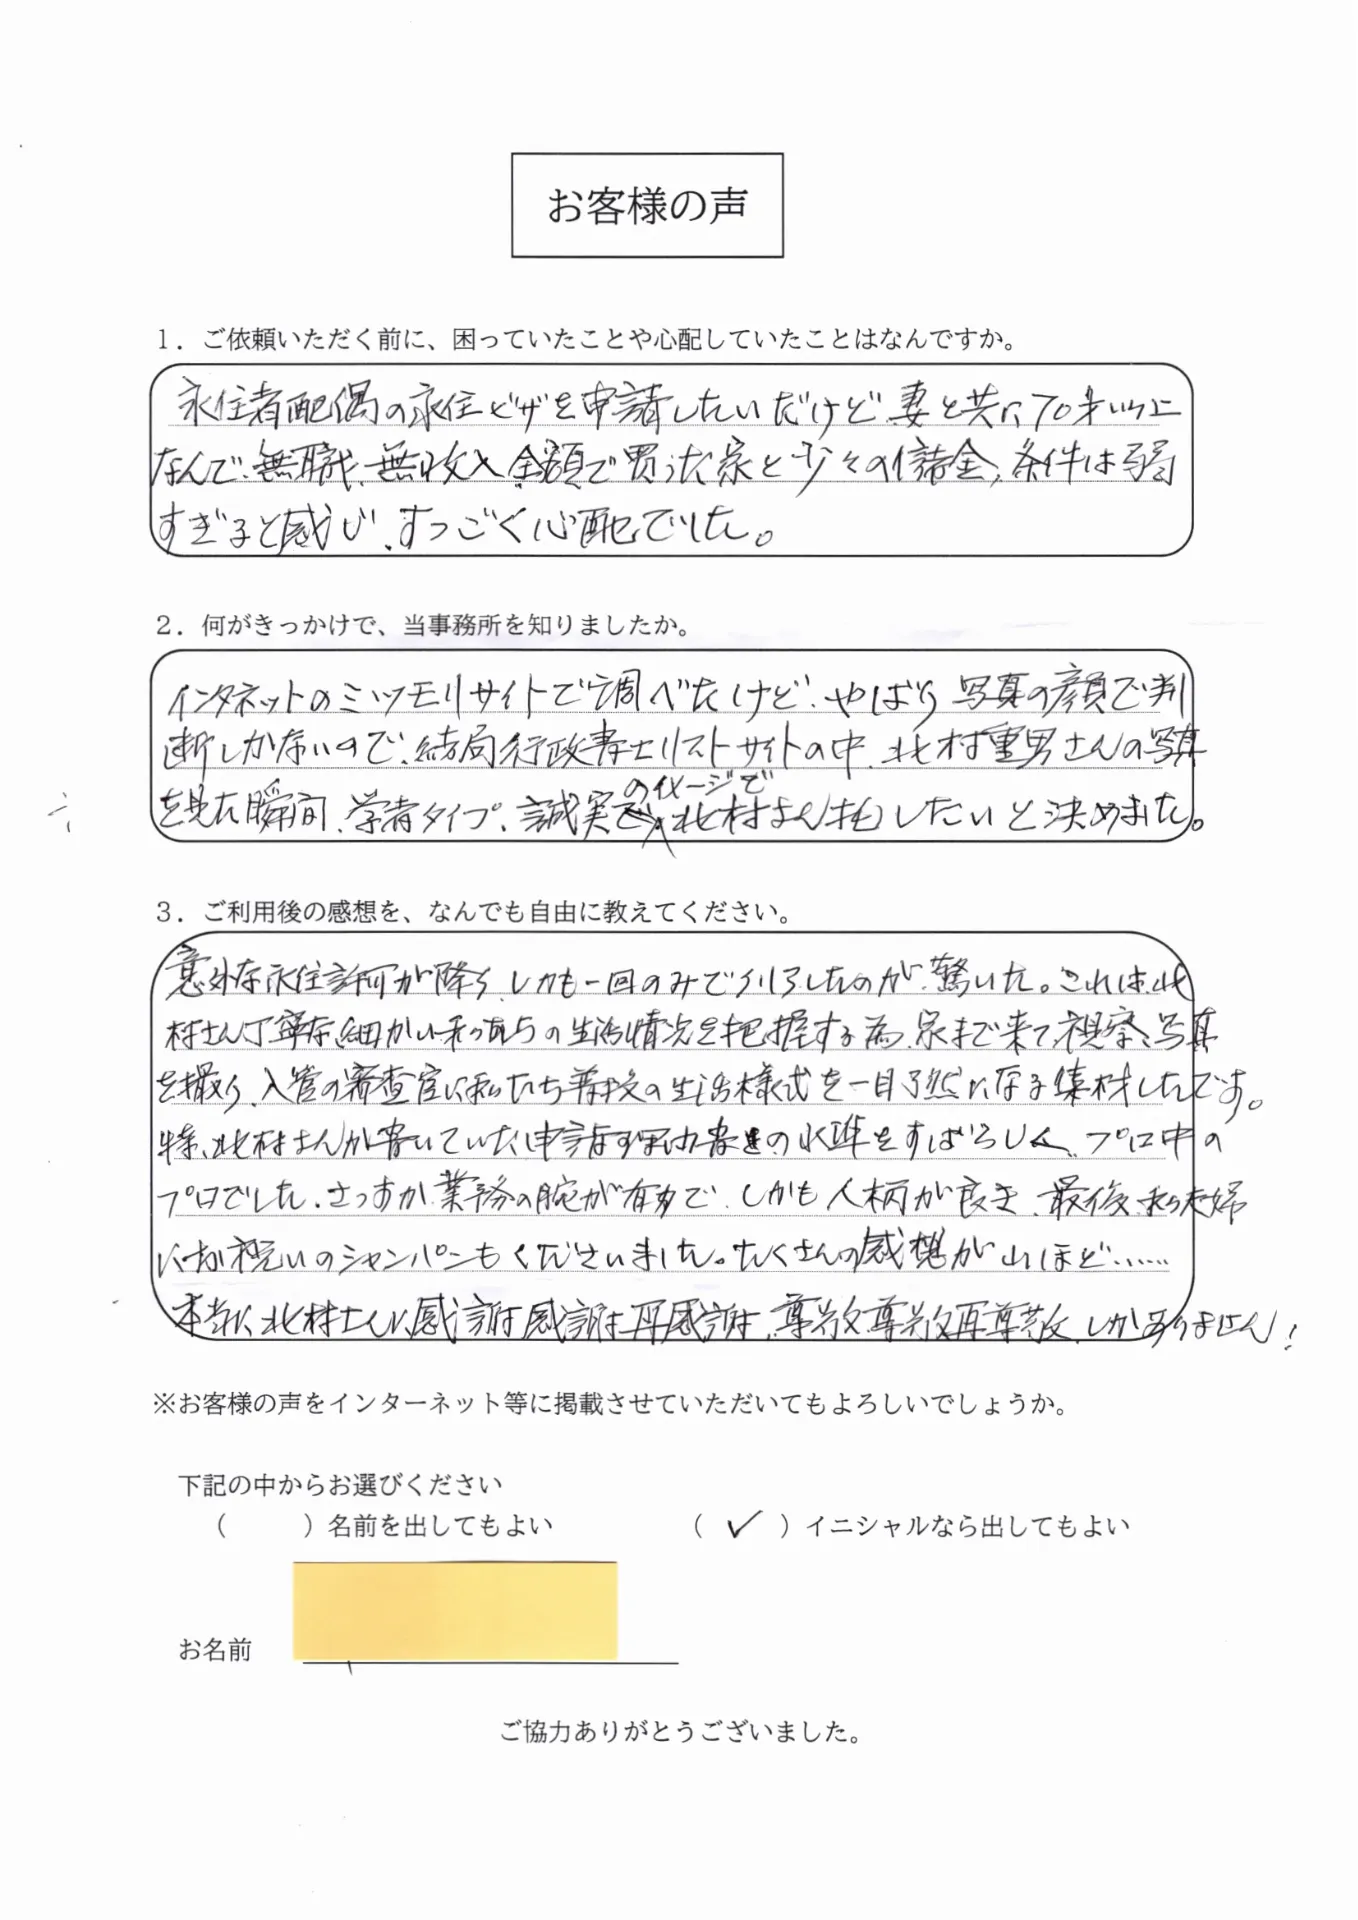 お客様の声
1．ご依頼いただく前に、困っていたことや心配していたことはなんですか。
永住者配偶の永住ビザを申請したいだけど、妻と共に70才以上
なんで、無職、無収入、全額で買った家と少々の借金、条件は弱
すぎると感じ、すっごく心配でした。
2．何がきっかけで、当事務所を知りましたか。
インタネットのミツモリサイトで調べたけど、やはり写真の顔で判
断しかないので、結局行政書士リストサイトの中、北村重男さんの写真
のイメージで
を見た瞬間、学者タイプ、誠実 北村さん したいと決めました。
3．ご利用後の感想を、なんでも自由に教えてください。
意外な永住許可が降り、しかも一回のみで したのが、驚いた。これは、北
村さん丁寧な、細かい私たちの生活情況を把握する為、家まで来て、視察、写真
を撮り、入管の審査官に私たち 生活様式を一目了然になる集材したです。
特、北村さんが書いていた申請 の水準をすばらしく、プロ中の
プロでした、さっすが、業務の腕が有るで、しかも人柄が良き、最後、私ら夫婦
にお祝いのシャンパンもくださいました。たくさんの感想が山ほど……
本当に、北村さんに感謝感謝再感謝、尊敬尊敬再尊敬しかありません！
※お客様の声をインターネット等に掲載させていただいてもよろしいでしょうか。
下記の中からお選びください
（　　）名前を出してもよい　（ ✓ ）イニシャルなら出してもよい
お名前
ご協力ありがとうございました。